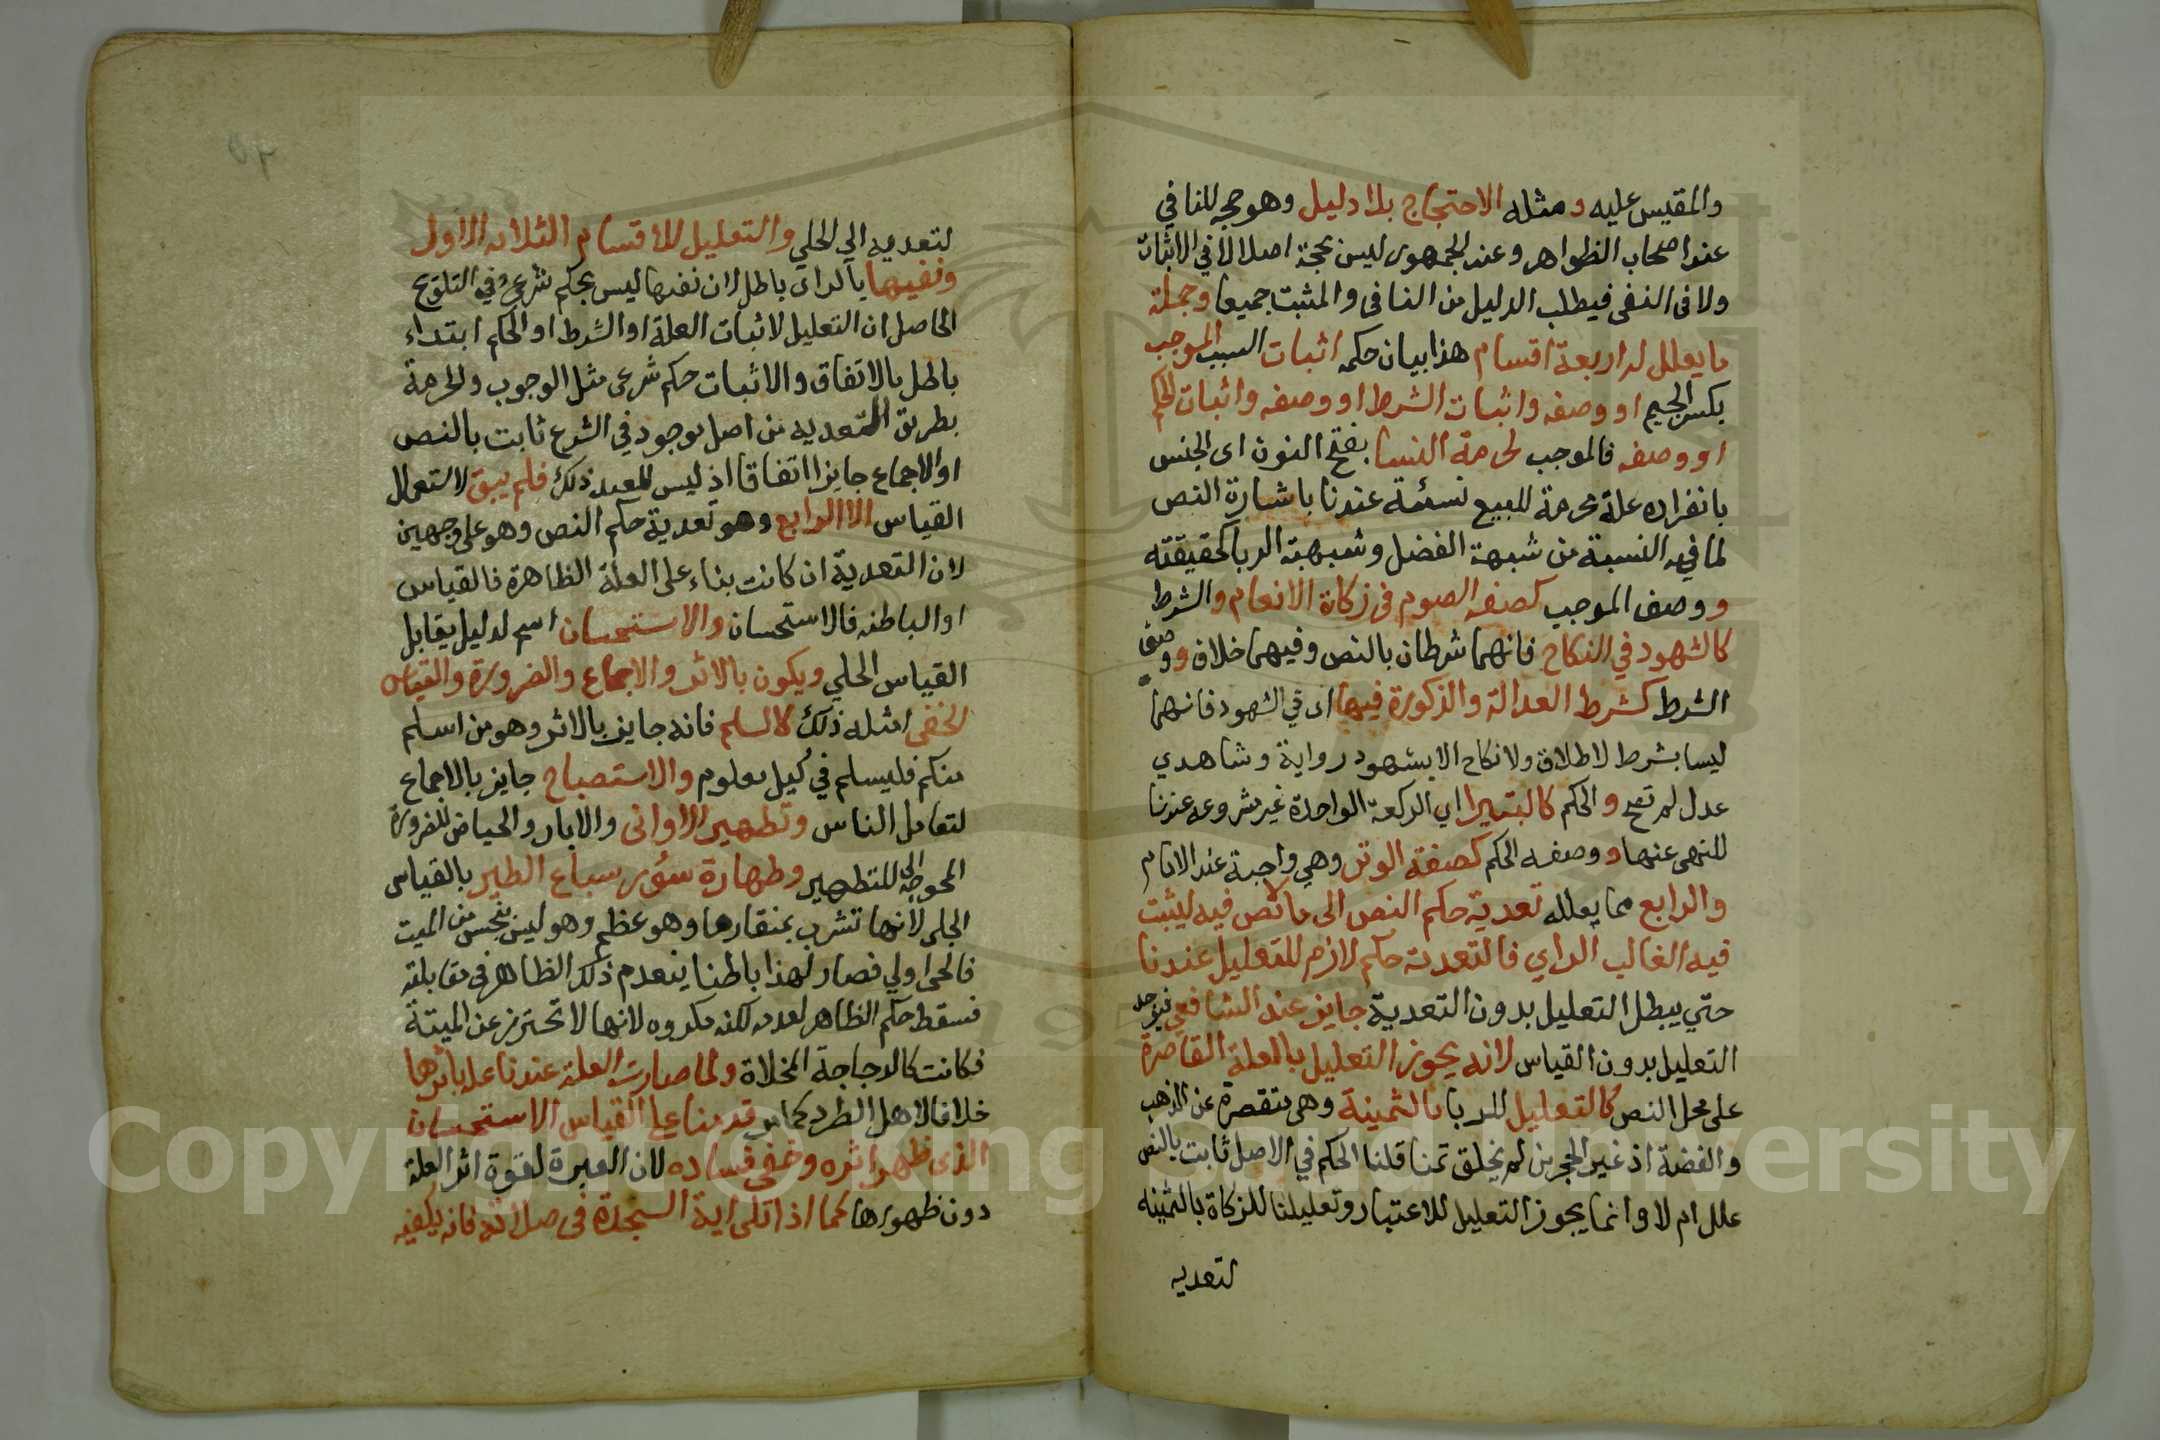 والمقيس عليه ومثله الاحتجاج بلا دليل وهو حجه للنافي
عند اصحاب الظواهر وعند الجمهور ليس بحجة اصلا لا في الاثبات
ولا في النفي فيطلب الدليل من النافي والمثبت جميعا وجملة
ما يعلل له اربعة اقسام هذا بيان حكمه اثبات السبب الموجب
بكسر الجيم او وصفه واثبات الشرط او وصفه واثبات الحكم
او وصفه فالموجب لحرمة النسا بفتح النون اى الجنس
بانفراده علة محرمة للبيع نسئة عندنا باشارة النص
لما فيه النسبة من شبهة الفضل وشبهة الربا كحقيقته
ووصف الموجب كصفه الصوم في زكاة الانعام والشرط
كالشهود في النكاح فانهما شرطان بالنص وفيهما خلاف ووصف
الشرط كشرط العدالة والذكورة فيها اى في الشهود فانهما
ليسا بشرط لاطلاق ولا نكاح الا بشهود رواية وشاهدي
عدل لم تصح والحكم كالبتيرا اي الركعة الواحدة غير مشروعه عندنا
للنهي عنها ووصفه الحكم كصفة الوتر وهي واجبة عند الامام
والرابع مما يعلله تعدية حكم النص الى ما لا نص فيه ليثبت
فيه الغالب الراي فالتعدية حكم لازم للتعليل عندنا
حتي يبطل التعليل بدون التعدية جايز عند الشافعي فيوجد
التعليل بدون القياس لانه يجوز التعليل بالعلة القاصرة
على محل النص كالتعليل للربا بالثمينة وهي مقتصرة عن الذهب
والفضة اذ غير الحجرين لم يخلق ثمنا قلنا الحكم في الاصل ثابت بالنص
علل ام لا وانما يجوز التعليل للاعتبار وتعليلنا للزكاة بالثمينه
لتعديه
لتعديه الي الحلي والتعليل للاقسام الثلاثه الاول
ونفيها بالراى باطل لان نفيها ليس بحكم شرعي وفي التلويح
الحاصل ان التعليل لاثبات العلة او الشرط او الحكم ابتداء
باطل بالاتفاق والاثبات حكم شرعى مثل الوجوب والحرمة
بطريق التعديه من اصل موجود في الشرع ثابت بالنص
او الاجماع جايز اتفاقا اذ ليس للعبد ذلك فلم يبق لاستعمال
القياس الا الرابع وهو تعدية حكم النص وهو على وجهين
لان التعدية ان كانت بناء على العلة الظاهرة فالقياس
او الباطنه فالاستحسان والاستحسان اسم لدليل يقابل
القياس الجلي ويكون بالاثر والاجماع والضرورة والقياس
الخفى امثله ذلك كالسلم فانه جايز بالاثر وهو من اسلم
منكم فليسلم في كيل معلوم والاستصباح جايز بالاجماع
لتعامل الناس وتطهير الاوانى والابار والحياض للضرورة
المحوجه الى للتطهير وطهارة سؤر سباع الطير بالقياس
الجلى لانها تشرب بمنقارها وهو عظم وهو ليس بنجس من الميت
فالحى اولي فصار لهذا باطنا ينعدم ذلك الظاهر في مقابلته
فسقط حكم الظاهر لعدمه لكنه مكروه لانها لا تحترز عن الميتة
فكانت كالدجاجة المخلاة ولما صارت العلة عندنا علة باثرها
خلافا لاهل الطرد كما مر قدمنا على القياس الاستحسان
الذى ظهر اثره وخفى فساده لان العبرة لقوة اثر العلة
دون ظهورها كما اذا تلى اية السجدة في صلاته فانه يكفيه
Copyright © King Saud University